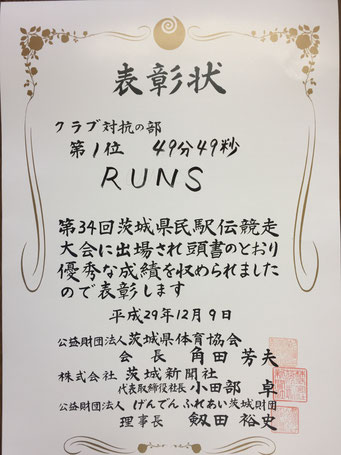 表彰状
クラブ対抗の部
第1位 49分49秒
RUNS
第34回茨城県民駅伝競走
大会に出場され頭書のとおり
優秀な成績を収められました
ので表彰します
平成29年12月9日
公益財団法人茨城県体育協会
会長 角田芳夫
株式会社 茨城新聞社
代表取締役社長 小田部 卓
公益財団法人 げんでんふれあい茨城財団
理事長 剱田裕史